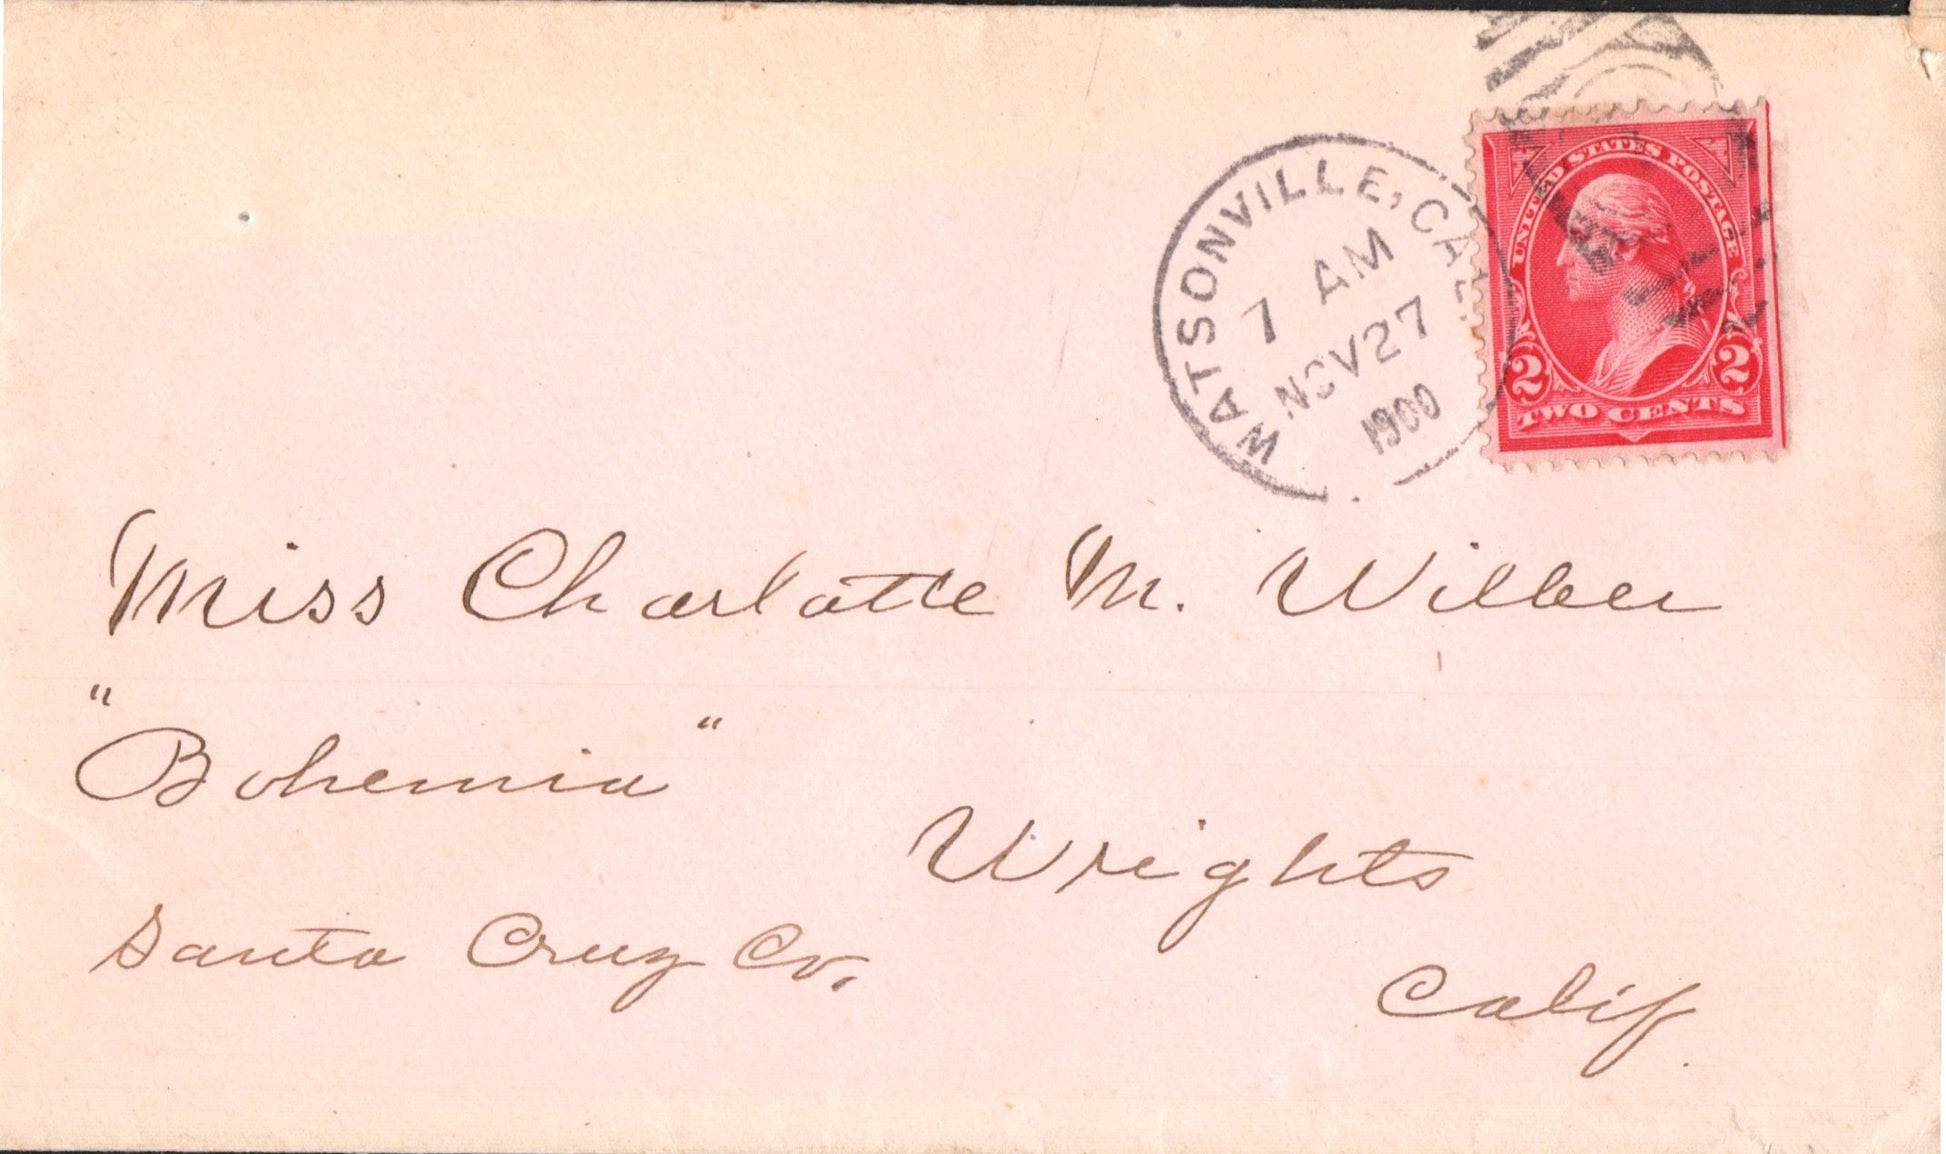 WATSONVILLE, CAL.
7 AM
NOV 27
1900
UNITED STATES POSTAGE
2 2
TWO CENTS
Miss Charlotte M. Wilber
"Bohemia"
Wrights
Santa Cruz Co.
Calif.